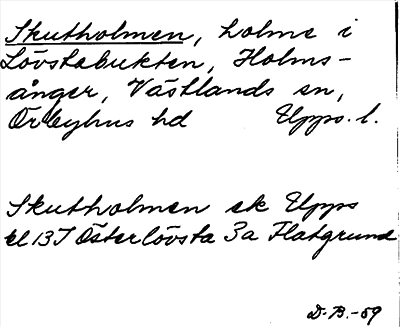 Skutholmen, holme i
Lövstabukten, Holms-
ånger, Västlands sn,
Örbyhus hd Upps. l.
Skutholmen ek Upps
bl 13 I Österlövsta 3a Flatgrund
D. B. -59